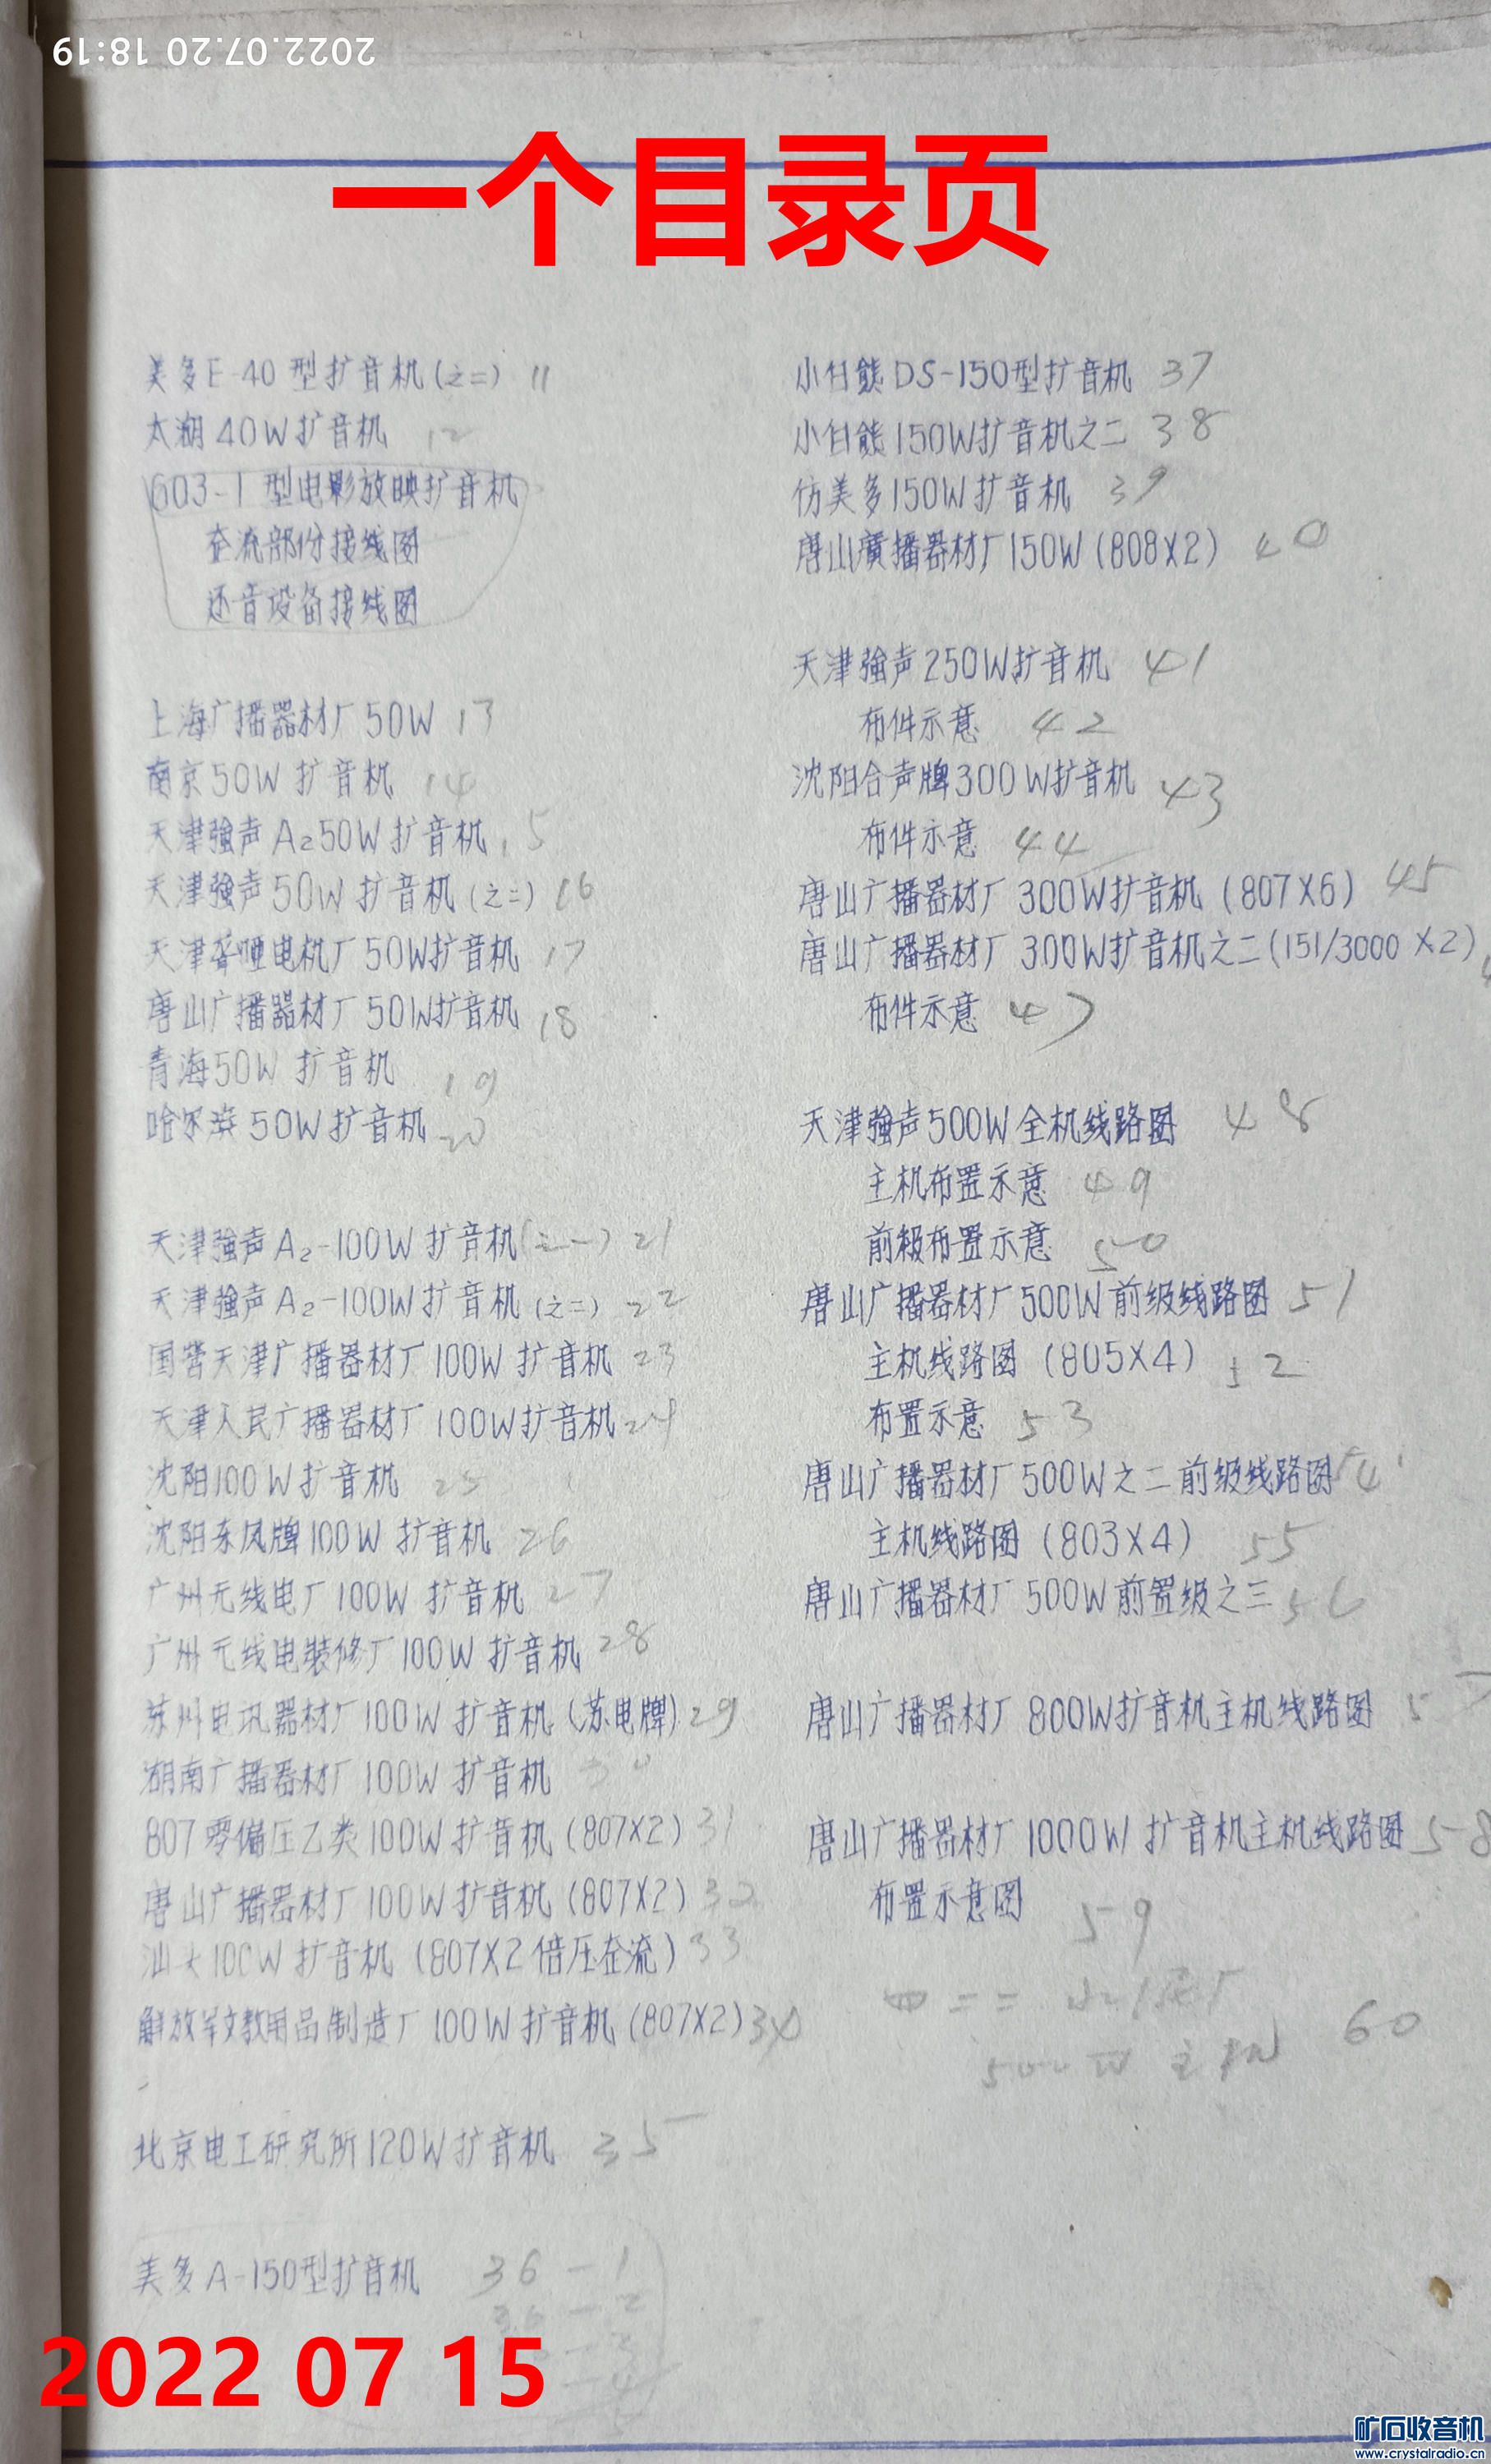 2022.07.20 18:19
一个目录页
美多E-40型扩音机(之二) 11
太湖40W扩音机 12
603-1型电影放映扩音机
整流部份接线图
还音设备接线图
上海广播器材厂50W 13
南京50W扩音机 14
天津強声A₂50W扩音机 15
天津強声50W扩音机(之二) 16
天津聋哑电机厂50W扩音机 17
唐山广播器材厂50W扩音机 18
青海50W扩音机 19
哈尔滨50W扩音机 20
天津強声A₂-100W扩音机(之一) 21
天津強声A₂-100W扩音机(之二) 22
国营天津广播器材厂100W扩音机 23
天津人民广播器材厂100W扩音机 24
沈阳100W扩音机 25
沈阳东风牌100W扩音机 26
广州无线电厂100W扩音机 27
广州无线电装修厂100W扩音机 28
苏州电讯器材厂100W扩音机(苏电牌) 29
湖南广播器材厂100W扩音机 30
807零偏压乙类100W扩音机(807X2) 31
唐山广播器材厂100W扩音机(807X2) 32
汕头100W扩音机(807X2倍压整流) 33
解放军文教用品制造厂100W扩音机(807X2) 34
北京电工研究所120W扩音机 35
美多A-150型扩音机 36-1
36-2
-3
-4
小白熊DS-150型扩音机 37
小白熊150W扩音机之二 38
仿美多150W扩音机 39
唐山廣播器材厂150W(808X2) 40
天津強声250W扩音机 41
布件示意 42
沈阳合声牌300W扩音机 43
布件示意 44
唐山广播器材厂300W扩音机(807X6) 45
唐山广播器材厂300W扩音机之二(151/3000X2)
布件示意 47
天津強声500W全机线路图 48
主机布置示意 49
前級布置示意 50
唐山广播器材厂500W前级线路图 51
主机线路图(805X4) 52
布置示意 53
唐山广播器材厂500W之二前级线路图 54
主机线路图(803X4) 55
唐山广播器材厂500W前置级之三 56
唐山广播器材厂800W扩音机主机线路图 57
唐山广播器材厂1000W扩音机主机线路图 58
布置示意图 59
500W主机 60
2022 07 15
矿石收音机
www.crystalradio.cn